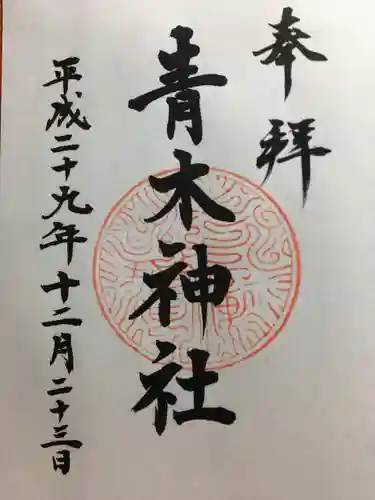 奉拝
青木神社
平成二十九年十二月二十三日